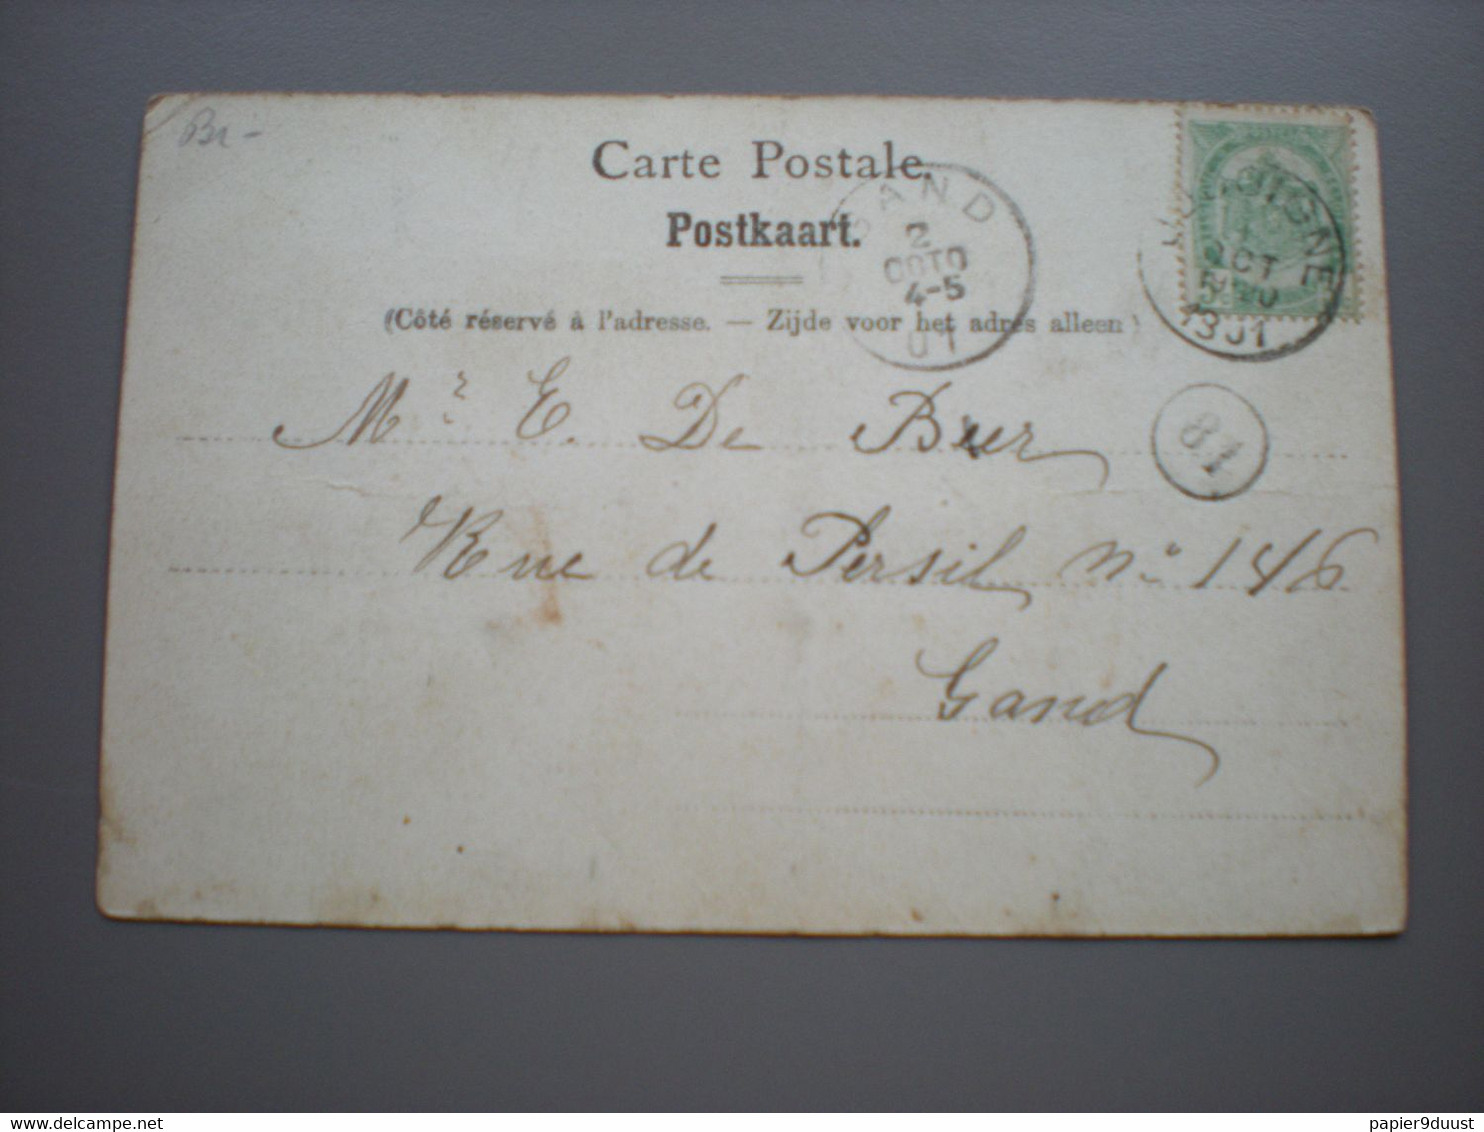 Br -
Carte Postale.
Postkaart.
(Côté réservé à l'adresse. — Zijde voor het adres alleen)
GAND
2
OCTO
4-5
01
OCT
1901
Mr. E. De Buer
81
Rue de Persil n° 146
Gand
delcampe.net
papier9duust